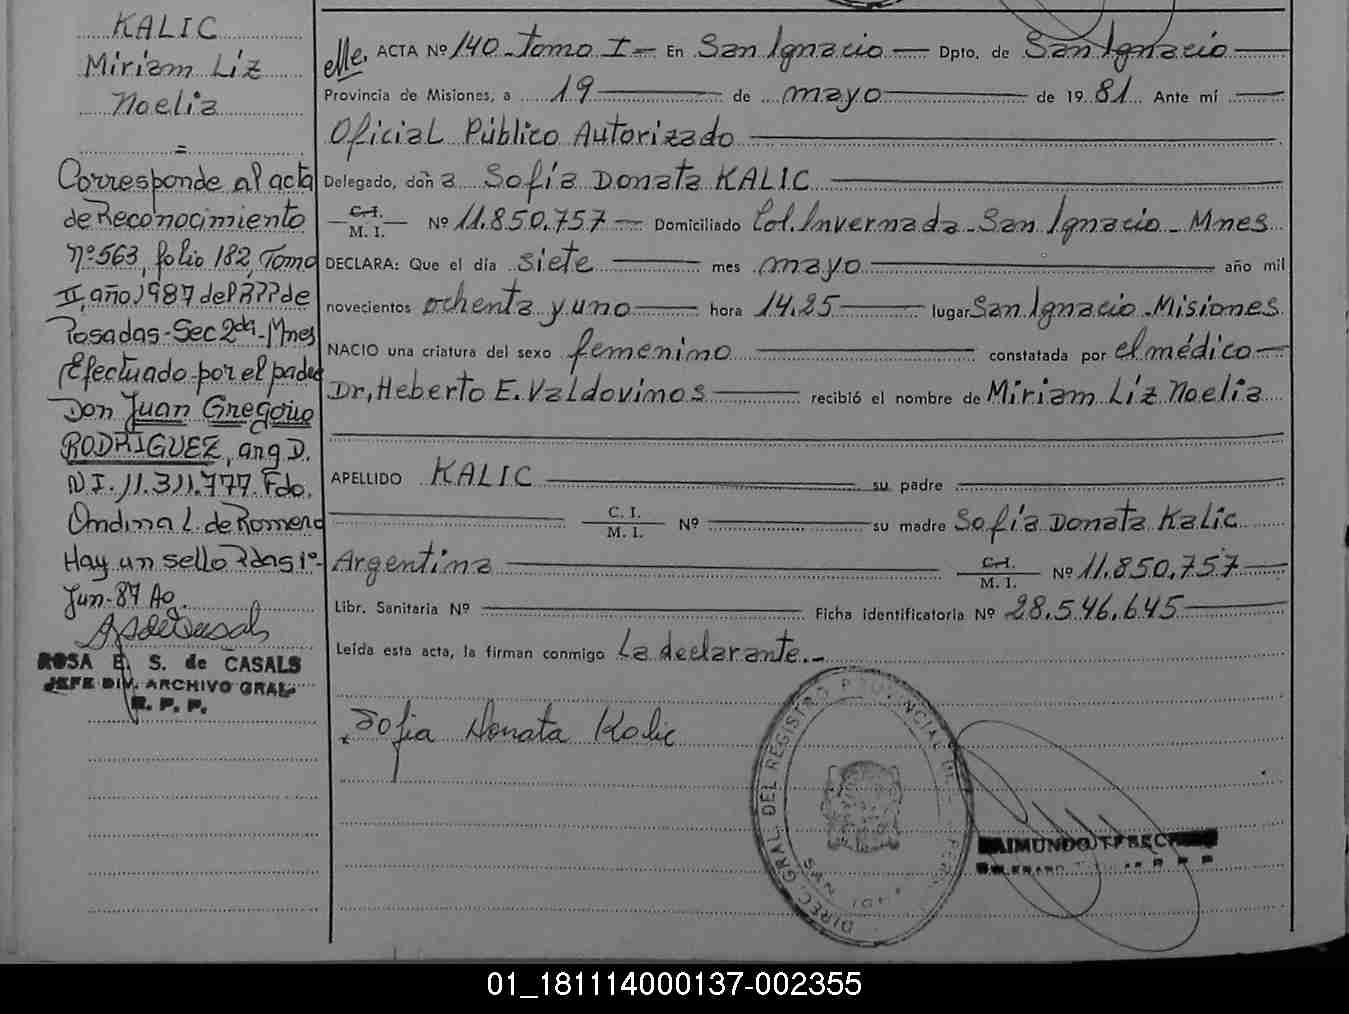 KALIC
Miriam Liz
Noelia
=
Corresponde al acta
de Reconocimiento
Nº 563, folio 182, Tomo
II, año 1987 del R??? de
Posadas-Sec 2da-Mnes
Efectuado por el padre
Don Juan Gregorio
RODRIGUEZ, arg D.
N I. 11.311.777 Fdo.
Ondina L. de Romero
Hay un sello Pdas 1º-
Jun-87 Ao.
ROSA E. S. de CASALS
JEFE DIV. ARCHIVO GRAL.
R. P. P.
elle. ACTA Nº 140 - Tomo I - En San Ignacio — Dpto. de San Ignacio
Provincia de Misiones, a 19 de mayo de 1981. Ante mí
Oficial Público Autorizado
Delegado, doña Sofía Donata KALIC
C.I. / M. I. Nº 11.850.757 — Domiciliado Col. Invernada - San Ignacio - Mnes
DECLARA: Que el día siete mes mayo año mil
novecientos ochenta y uno hora 14,25 lugar San Ignacio - Misiones
NACIO una criatura del sexo femenino constatada por el médico
Dr. Heberto E. Valdovinos recibió el nombre de Miriam Liz Noelia
APELLIDO KALIC su padre
C. I. / M. I. Nº su madre Sofía Donata Kalic
Argentina C.I. / M. I. Nº 11.850.757
Libr. Sanitaria Nº Ficha identificatoria Nº 28.546.645
Leída esta acta, la firman conmigo La declarante.-
Sofia Donata Kalic
DIREC. GRAL. DEL REGISTRO PROVINCIAL DE
SAN
RAIMUNDO
01_181114000137-002355